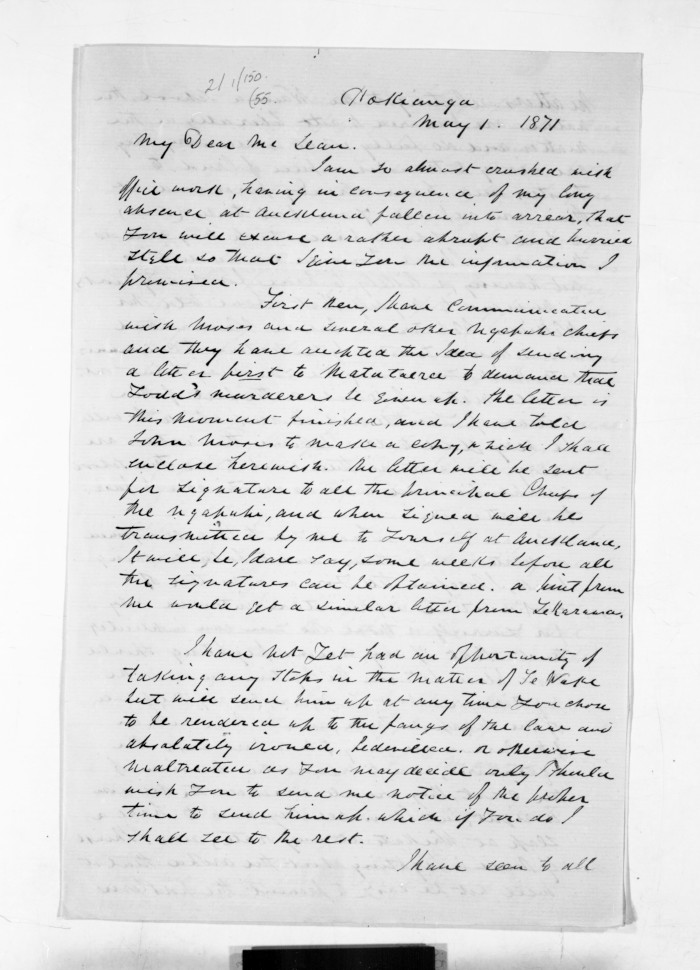 21/1/150.
(55.
Hokianga
May 1. 1871
My Dear McLean.
I am so almost crushed with
office work, having in consequence of my long
absence at Auckland fallen into arrear, that
You will excuse a rather abrupt and hurried
style so that I give You the information I
promised.
First then, I have communicated
with Moses and several other Ngapuhi chiefs
and they have accepted the Idea of sending
a letter first to Matutaera to demand that
Todd's murderers be given up. The letter is
this moment finished, and I have told
John Moses to make a copy, which I shall
enclose herewith. The letter will be sent
for signature to all the principal Chiefs of
the Ngapuhi, and when signed will be
transmitted by me to Yourself at Auckland,
It will, be, I dare say, some weeks before all
the signatures can be obtained. a hint from
me would get a similar letter from Te Rarawa.
I have not Yet had an opportunity of
taking any steps in the matter of Te Wake
but will send him up at any time You chose
to be rendered up to the fangs of the law and
absolutely ironed, bedevilled. or otherwise
maltreated as You may decide only I should
wish You to send me notice of the proper
time to send him up. which if You do I
shall see to the rest.
I have seen to all